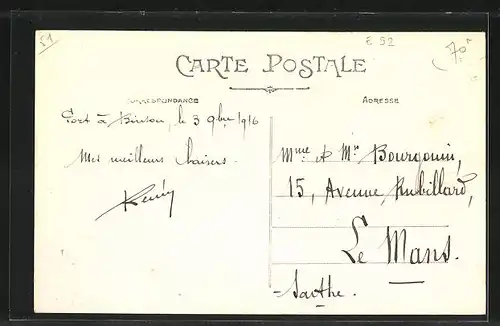 51
E 52
70
CARTE POSTALE
CORRESPONDANCE
ADRESSE
Port à Binson, le 3 9bre 1916
Mes meilleurs baisers.
Mme & Mr Bourgouin,
15, Avenue Rubillard,
Le Mans.
Sarthe.